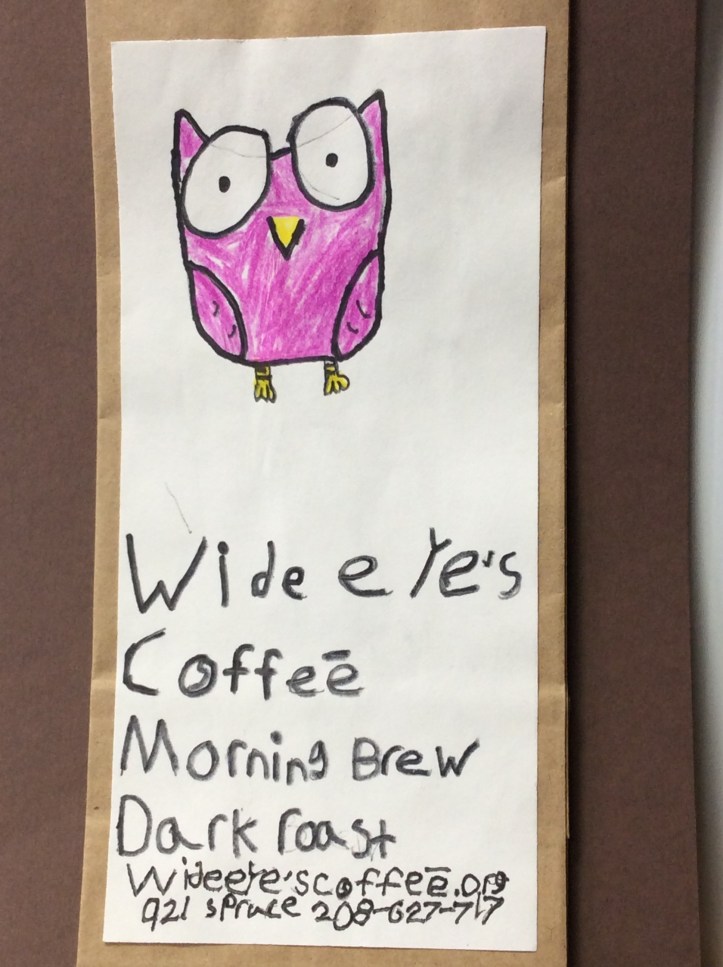 Wide eye's
Coffeē
Morning Brew
Dark roast
Wideeye'scoffeē.org
921 spruce 208-627-717